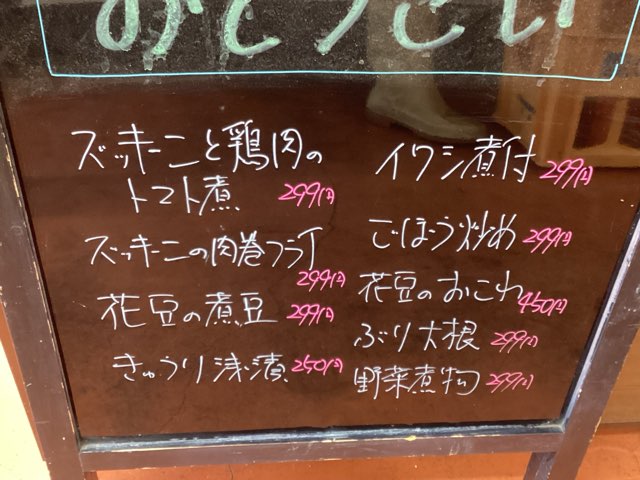 おそうざい
ズッキーニと鶏肉の
トマト煮 299円
ズッキーニの肉巻フライ
299円
花豆の煮豆 299円
きゅうり浅漬 250円
イワシ煮付 299円
ごぼう炒め 299円
花豆のおこわ 450円
ぶり大根 299円
野菜煮物 299円